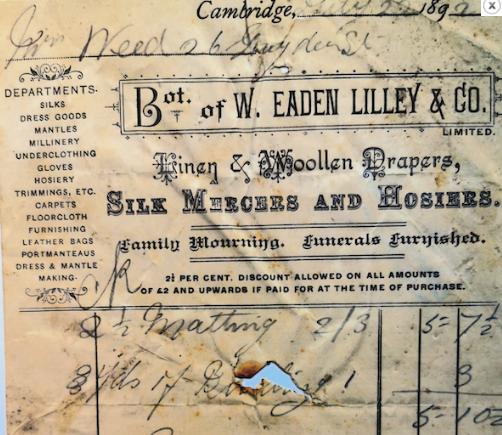 Cambridge, July 1892
Weed 26
DEPARTMENTS.
SILKS
DRESS GOODS
MANTLES
MILLINERY
UNDERCLOTHING
GLOVES
HOSIERY
TRIMMINGS, ETC.
CARPETS
FLOORCLOTH
FURNISHING
LEATHER BAGS
PORTMANTEAUS
DRESS & MANTLE
MAKING.
Bot. of W. EADEN LILLEY & CO.
LIMITED.
Linen & Woollen Drapers,
SILK MERCERS AND HOSIERS.
Family Mourning. Funerals Furnished.
2½ PER CENT. DISCOUNT ALLOWED ON ALL AMOUNTS
OF £2 AND UPWARDS IF PAID FOR AT THE TIME OF PURCHASE.
2½ Matting 2/3 5 - 7½
3 yds of 1 3
5 - 10½